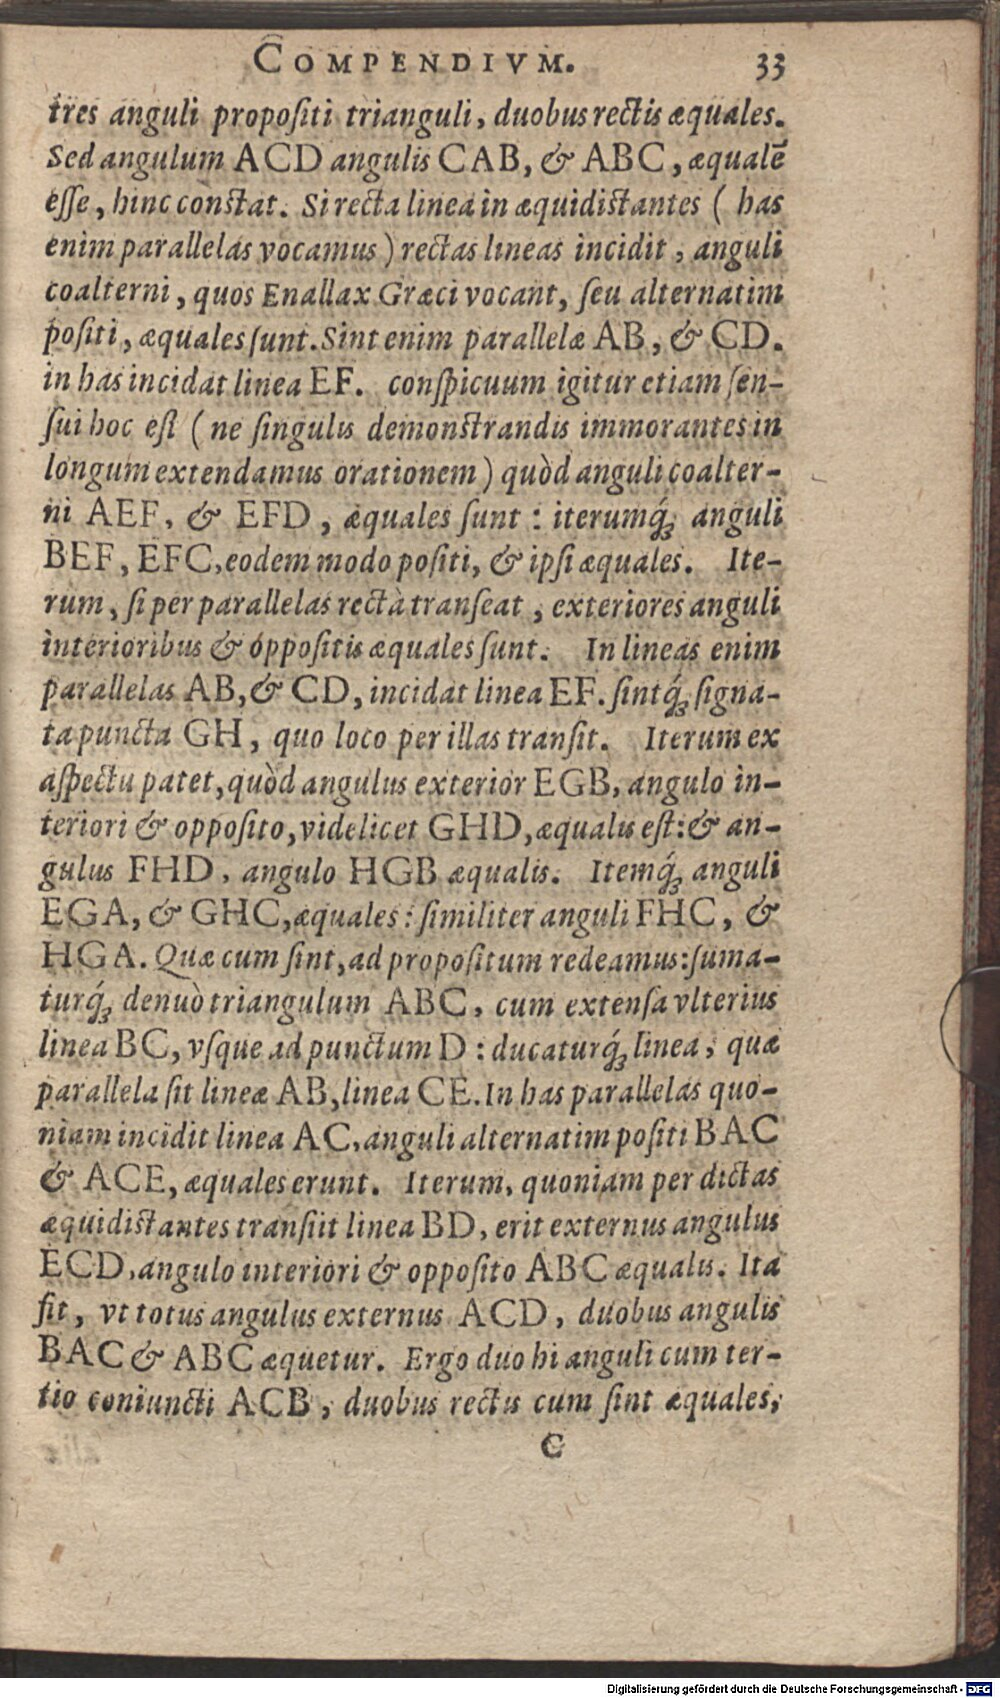 COMPENDIVM. 33
tres anguli propoſiti trianguli, duobus rectis æquales.
Sed angulum ACD angulis CAB, & ABC, æqualē
eſſe, hinc conſtat. Si recta linea in æquidiſtantes ( has
enim parallelas vocamus ) rectas lineas incidit, anguli
coalterni, quos Enallax Græci vocant, ſeu alternatim
poſiti, æquales ſunt. Sint enim parallelæ AB, & CD.
in has incidat linea EF. conſpicuum igitur etiam ſen-
ſui hoc eſt ( ne ſingulis demonſtrandis immorantes in
longum extendamus orationem ) quòd anguli coalter-
ni AEF, & EFD, æquales ſunt : iterumq́ꝫ anguli
BEF, EFC, eodem modo poſiti, & ipſi æquales. Ite-
rum, ſi per parallelas recta tranſeat, exteriores anguli
interioribus & oppoſitis æquales ſunt. In lineas enim
parallelas AB, & CD, incidat linea EF. ſintq́ꝫ ſigna-
ta puncta GH, quo loco per illas tranſit. Iterum ex
aſpectu patet, quòd angulus exterior EGB, angulo in-
teriori & oppoſito, videlicet GHD, æqualis eſt: & an-
gulus FHD, angulo HGB æqualis. Itemq́ꝫ anguli
EGA, & GHC, æquales: ſimiliter anguli FHC, &
HGA. Quæ cum ſint, ad propoſitum redeamus: ſuma-
turq́ꝫ denuò triangulum ABC, cum extenſa vlterius
linea BC, vſque ad punctum D : ducaturq́ꝫ linea, quæ
parallela ſit lineæ AB, linea CE. In has parallelas quo-
niam incidit linea AC, anguli alternatim poſiti BAC
& ACE, æquales erunt. Iterum, quoniam per dictas
æquidiſtantes tranſiit linea BD, erit externus angulus
ECD, angulo interiori & oppoſito ABC æqualis. Ita
fit, vt totus angulus externus ACD, duobus angulis
BAC & ABC æquetur. Ergo duo hi anguli cum ter-
tio coniuncti ACB, duobus rectis cum ſint æquales,
C
Digitalisierung gefördert durch die Deutsche Forschungsgemeinschaft - DFG